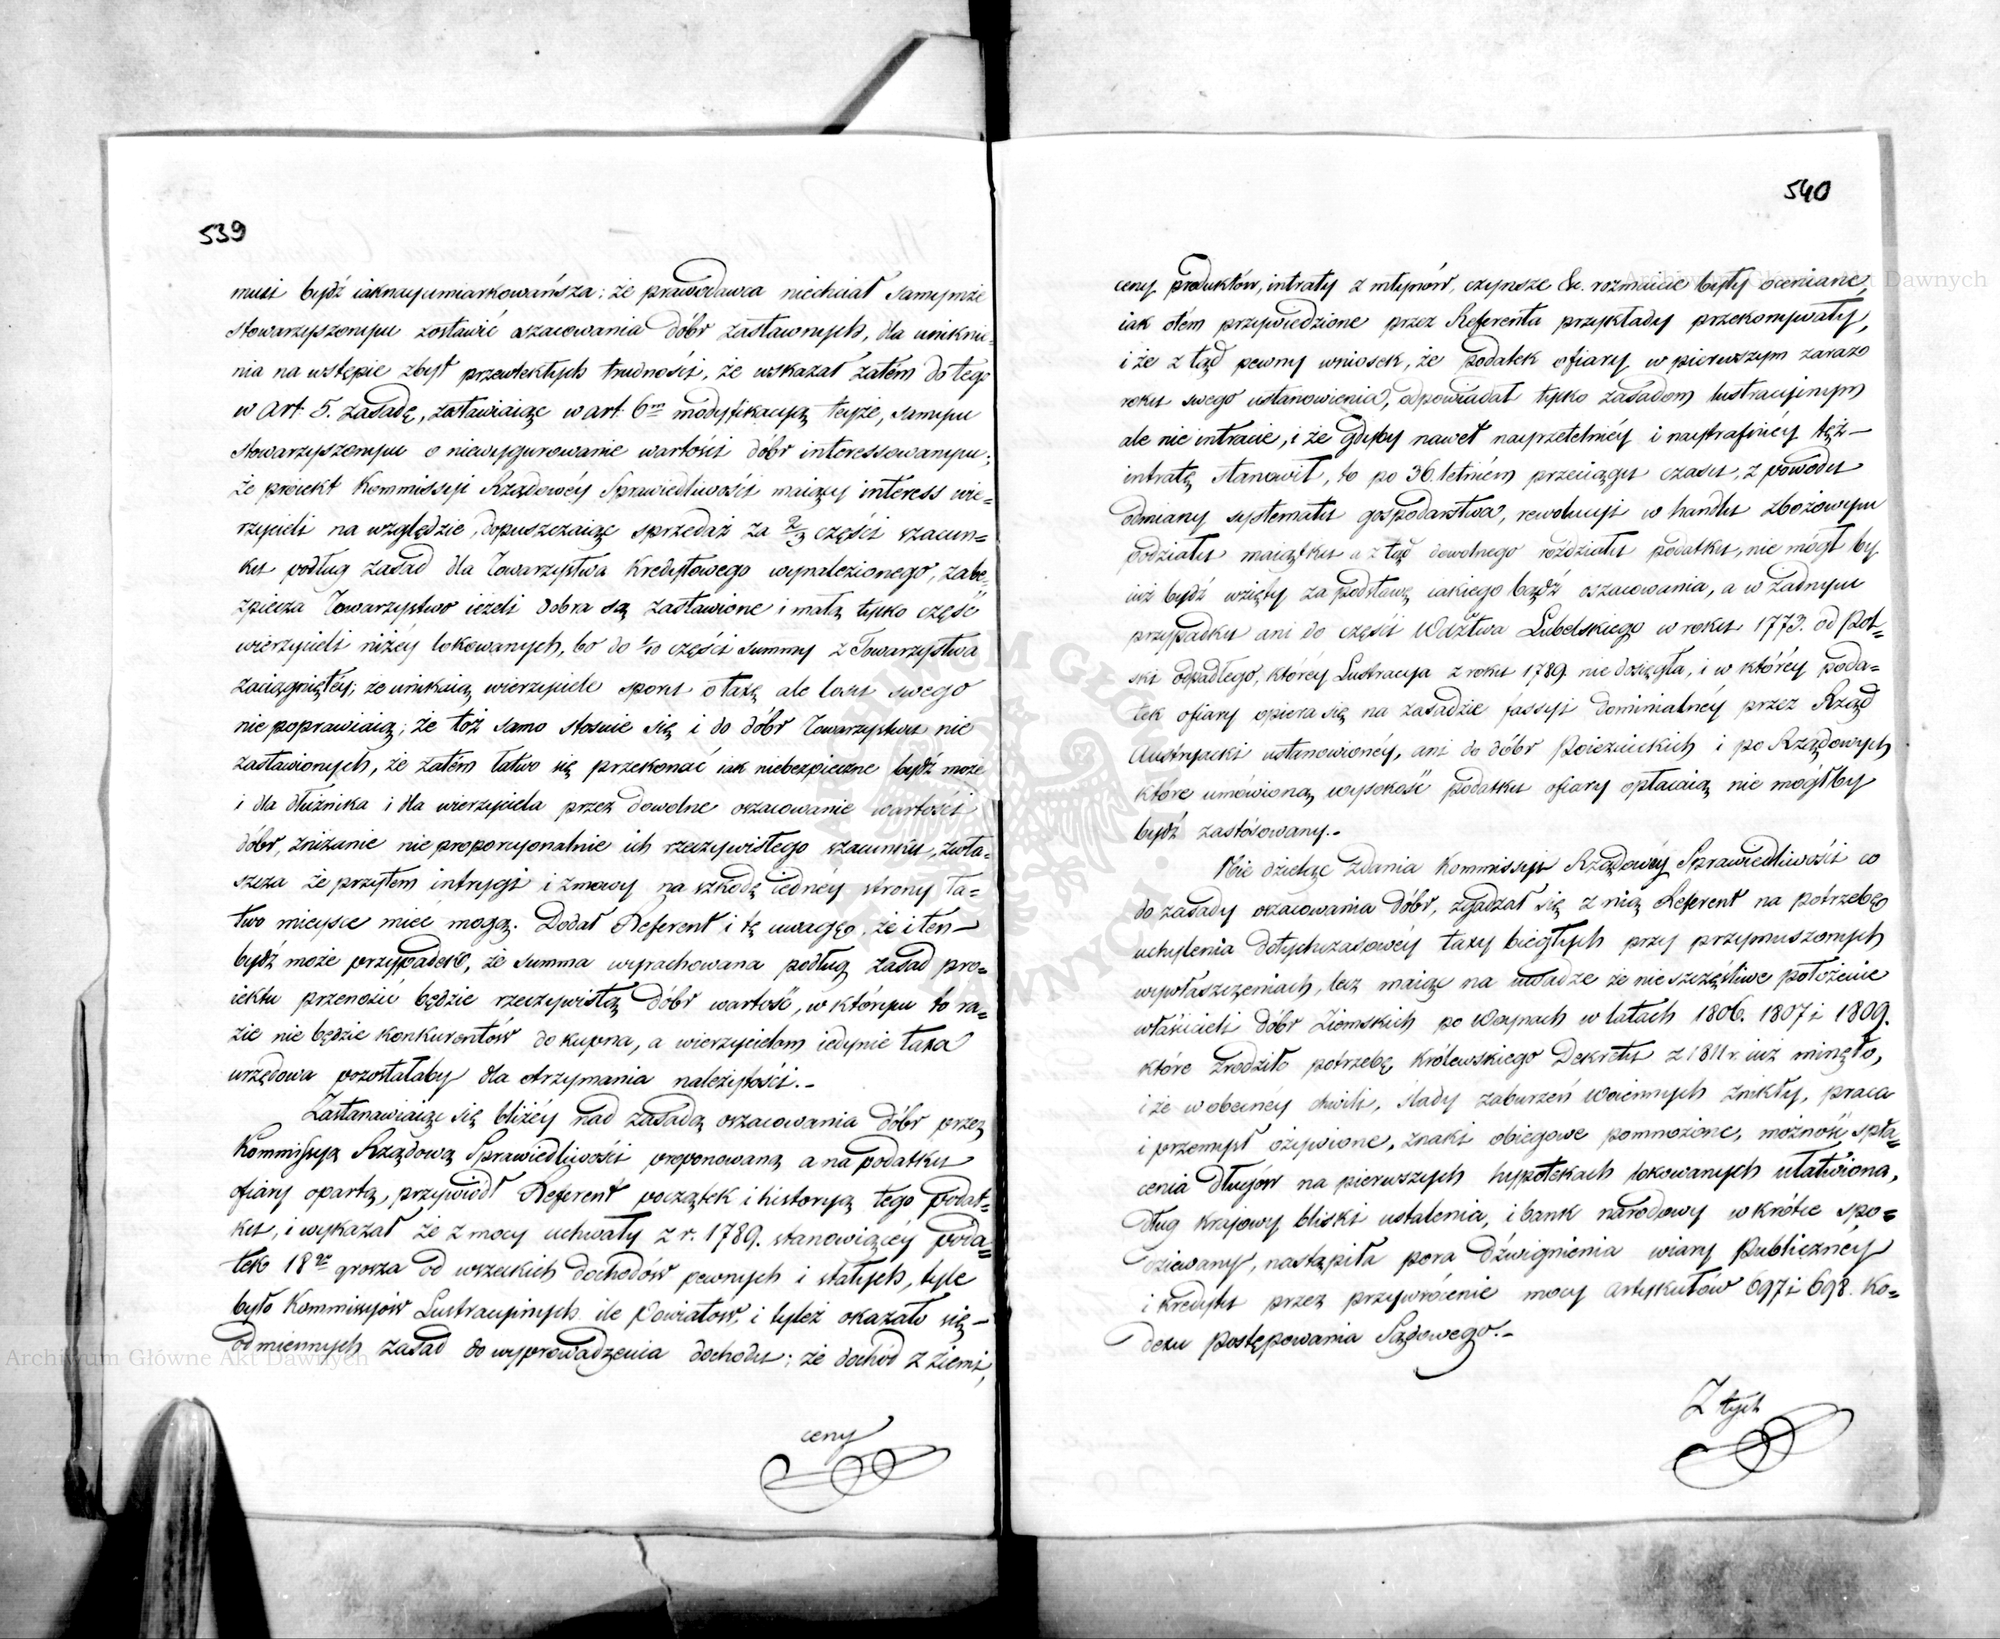 539
musi bydź iaknayumiarkowańsza; że prawodawca niechciał samymże
stowarzyszonym zostawić oszacowania dóbr zastawnych, dla uniknie-
nia na wstępie zbyt przewlekłych trudności, że wskazał zatém do tego
w Art. 5. zasadę, zostawiaiąc w art. 6m modyfikacyą teyże, samym
stowarzyszonym o niewygurowanie wartości dóbr interessowanym;
że proiekt Kommissyi Rządowéy Sprawiedliwości maiący interess wie-
rzycieli na względzie, dopuszczaiąc sprzedaż za 2/3 części szacun=
ku podług zasad dla Towarzystwa Kredytowego wynalezionego, zabe-
zpiecza Towarzystwo ieżeli dobra są zastawione i małą tylko część
wierzycieli niżéy lokowanych, bo do 1/10 części summy z Towarzystwa
zaciągniętéy; że unikaią wierzyciele sporu o taxę ale losu swego
nie poprawiaią; że toż samo stosuie się i do dóbr Towarzystwu nie
zastawionych, że zatém łatwo się przekonać iak niebezpieczne bydź może
i dla dłużnika i dla wierzyciela przez dowolne oszacowanie wartości
dóbr, zniżanie nieproporcyonalnie ich rzeczywistego szacunku, zwła-
szcza że przytem intrygi i zmowy na szkodę iednéy strony ła-
two mieysce mieć mogą. Dodał Referent i tę uwagę, że i ten-
bydź może przypadek, że summa wyrachowana podług zasad pro-
iektu przenosić będzie rzeczywistą dóbr wartość, w którym to ra-
zie nie będzie konkurentów do kupna, a wierzycielom iedynie taxa
urzędowa pozostałaby dla otrzymania należytości.-
Zastanawiaiąc się bliżéy nad zasadą oszacowania dóbr przez
Kommissyą Rządową Sprawiedliwości proponowaną a na podatku
ofiary opartą, przywiódł Referent początek i historyą tego podat-
ku, i wykazał że z mocy uchwały z r. 1789. stanowiącéy poda=
tek 18go grosza od wszelkich dochodów pewnych i stałych, tyle
było Kommissyów Lustracyinych ile Powiatow, i tyleż okazało się-
odmiennych zasad do wyprowadzenia dochodu; że dochód z ziemi,
ceny
540
ceny produktów, intraty z młynów, czynsze &c. rozmaicie były oceniane,
iak otém przywiedzione przez Referenta przykłady przekonywały,
i że z tąd pewny wniosek, że podatek ofiary w pierwszym zaraz
roku swego ustanowienia, odpowiadał tylko zasadom lustracyinym
ale nie intracie, i że gdyby nawet nayrzetelniéy i naytrafniéy téż-
intratę stanowił, to po 36. letniém przeciągu czasu, z powodu
odmiany systematu gospodarstwa, rewolucyi w handlu zbożowym
podziału maiątku a z tąd dowolnego rozdziału podatku, nie mógł by
iuż bydź wzięty za podstawę iakiego bądź oszacowania, a w żadnym
przypadku ani do części Wdztwa Lubelskiego w roku 1773. od Pol-
ski odpadłego, któréy Lustracya z roku 1789. nie dosięgła, i w któréy poda-
tek ofiary opiera się na zasadzie fassyi dominialnéy przez Rząd
Austryacki ustanowionéy, ani do dóbr Poiezuickich i po Rządowych
które umówioną wysokość podatku ofiary opłacaią nie mógłby
bydź zastósowany.-
Nie dzieląc zdania Kommissyi Rządowéy Sprawiedliwości co
do zasady oszacowania dóbr, zgadzał się z nią Referent na potrzebę
uchylenia dotychczasowéy taxy biegłych przy przymuszonych
wywłaszczeniach, lecz maiąc na uwadze że nieszczęśliwe położenie
właścicieli dóbr Ziemskich po Woynach w latach 1806. 1807 i 1809.
które zrodziło potrzebę Królewskiego Dekretu z 1811 r. iuż minęło,
i że w obecnéy chwili, ślady zaburzeń woiennych znikły, praca
i przemysł ożywione, znaki obiegowe pomnożone, możność spła-
cenia długów na pierwszych hypotekach lokowanych ułatwiona,
dług kraiowy bliski ustalenia, i bank narodowy wkrótce spo=
dziewany, nastąpiła pora dźwignienia wiary Publicznéy
i kredytu przez przywrócenie mocy artykułów 697 i 698. Ko=
dexu Postępowania Sądowego.-
Z tych
Archiwum Główne Akt Dawnych
Archiwum Główne Akt Dawnych